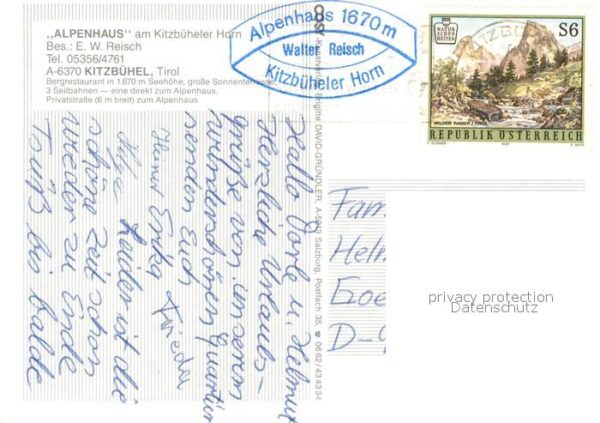 „ALPENHAUS" am Kitzbüheler Horn
Bes.: E. W. Reisch
Tel. 05356/4761
A-6370 KITZBÜHEL, Tirol
Bergrestaurant in 1.670 m Seehöhe, große Sonnenterrasse,
3 Seilbahnen — eine direkt zum Alpenhaus.
Privatstraße (6 m breit) zum Alpenhaus
Alpenhaus 1670 m
Walter Reisch
Kitzbüheler Horn
NATUR
SCHÖN
HEITEN
S6
WILDER KAISER
REPUBLIK ÖSTERREICH
COSY
Kunstverlag Brigitte DAVID-GRÜNDLER, A-5019 Salzburg, Postfach 35, ☎ 06 62/43 43 34
Hallo u. Helmut
Herzliche Urlaubs-
grüße von unserem
wunderschönen Quartier
senden Euch
Erika
Frieder
Leider ist die
schöne Zeit schon
wieder zu Ende
Tschüß bis balde
Fam
Helm
Goe
D-9
privacy protection
Datenschutz